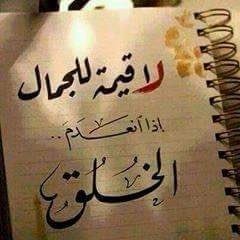 لا قيمة للجمال
إذا أنعدم..
الخلق